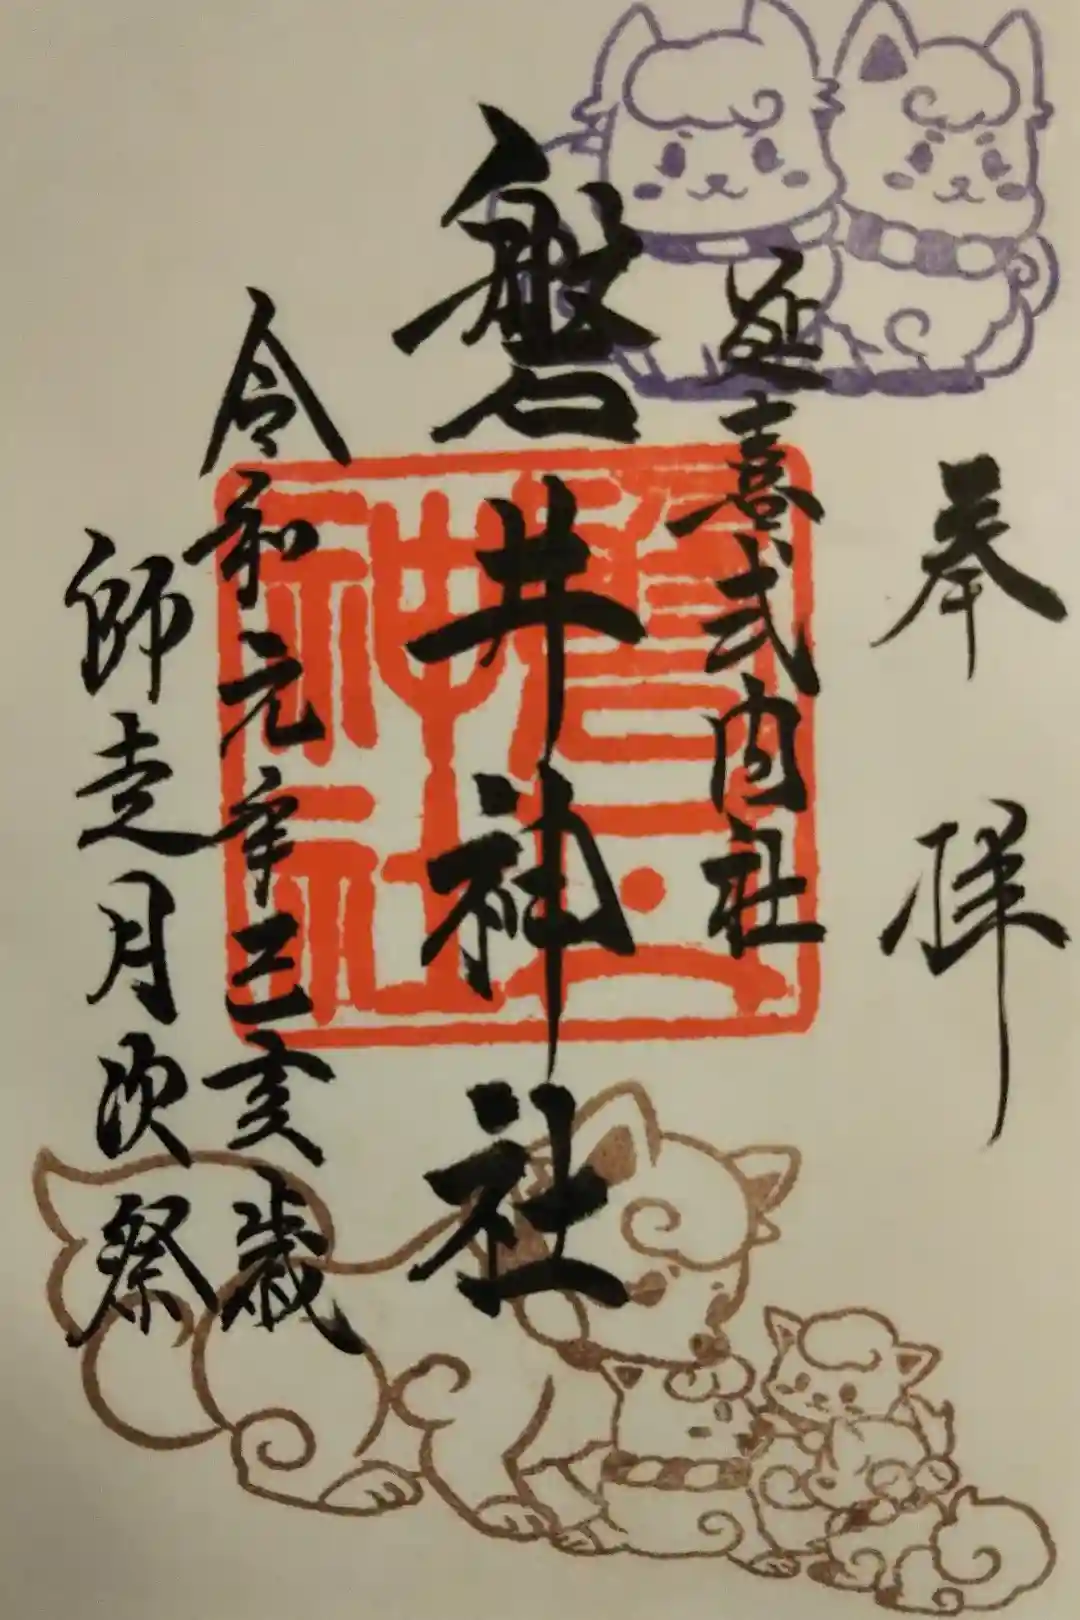 奉拝
延喜式内社
磐井神社
令和元年己亥歳
師走月次祭
磐井
神社